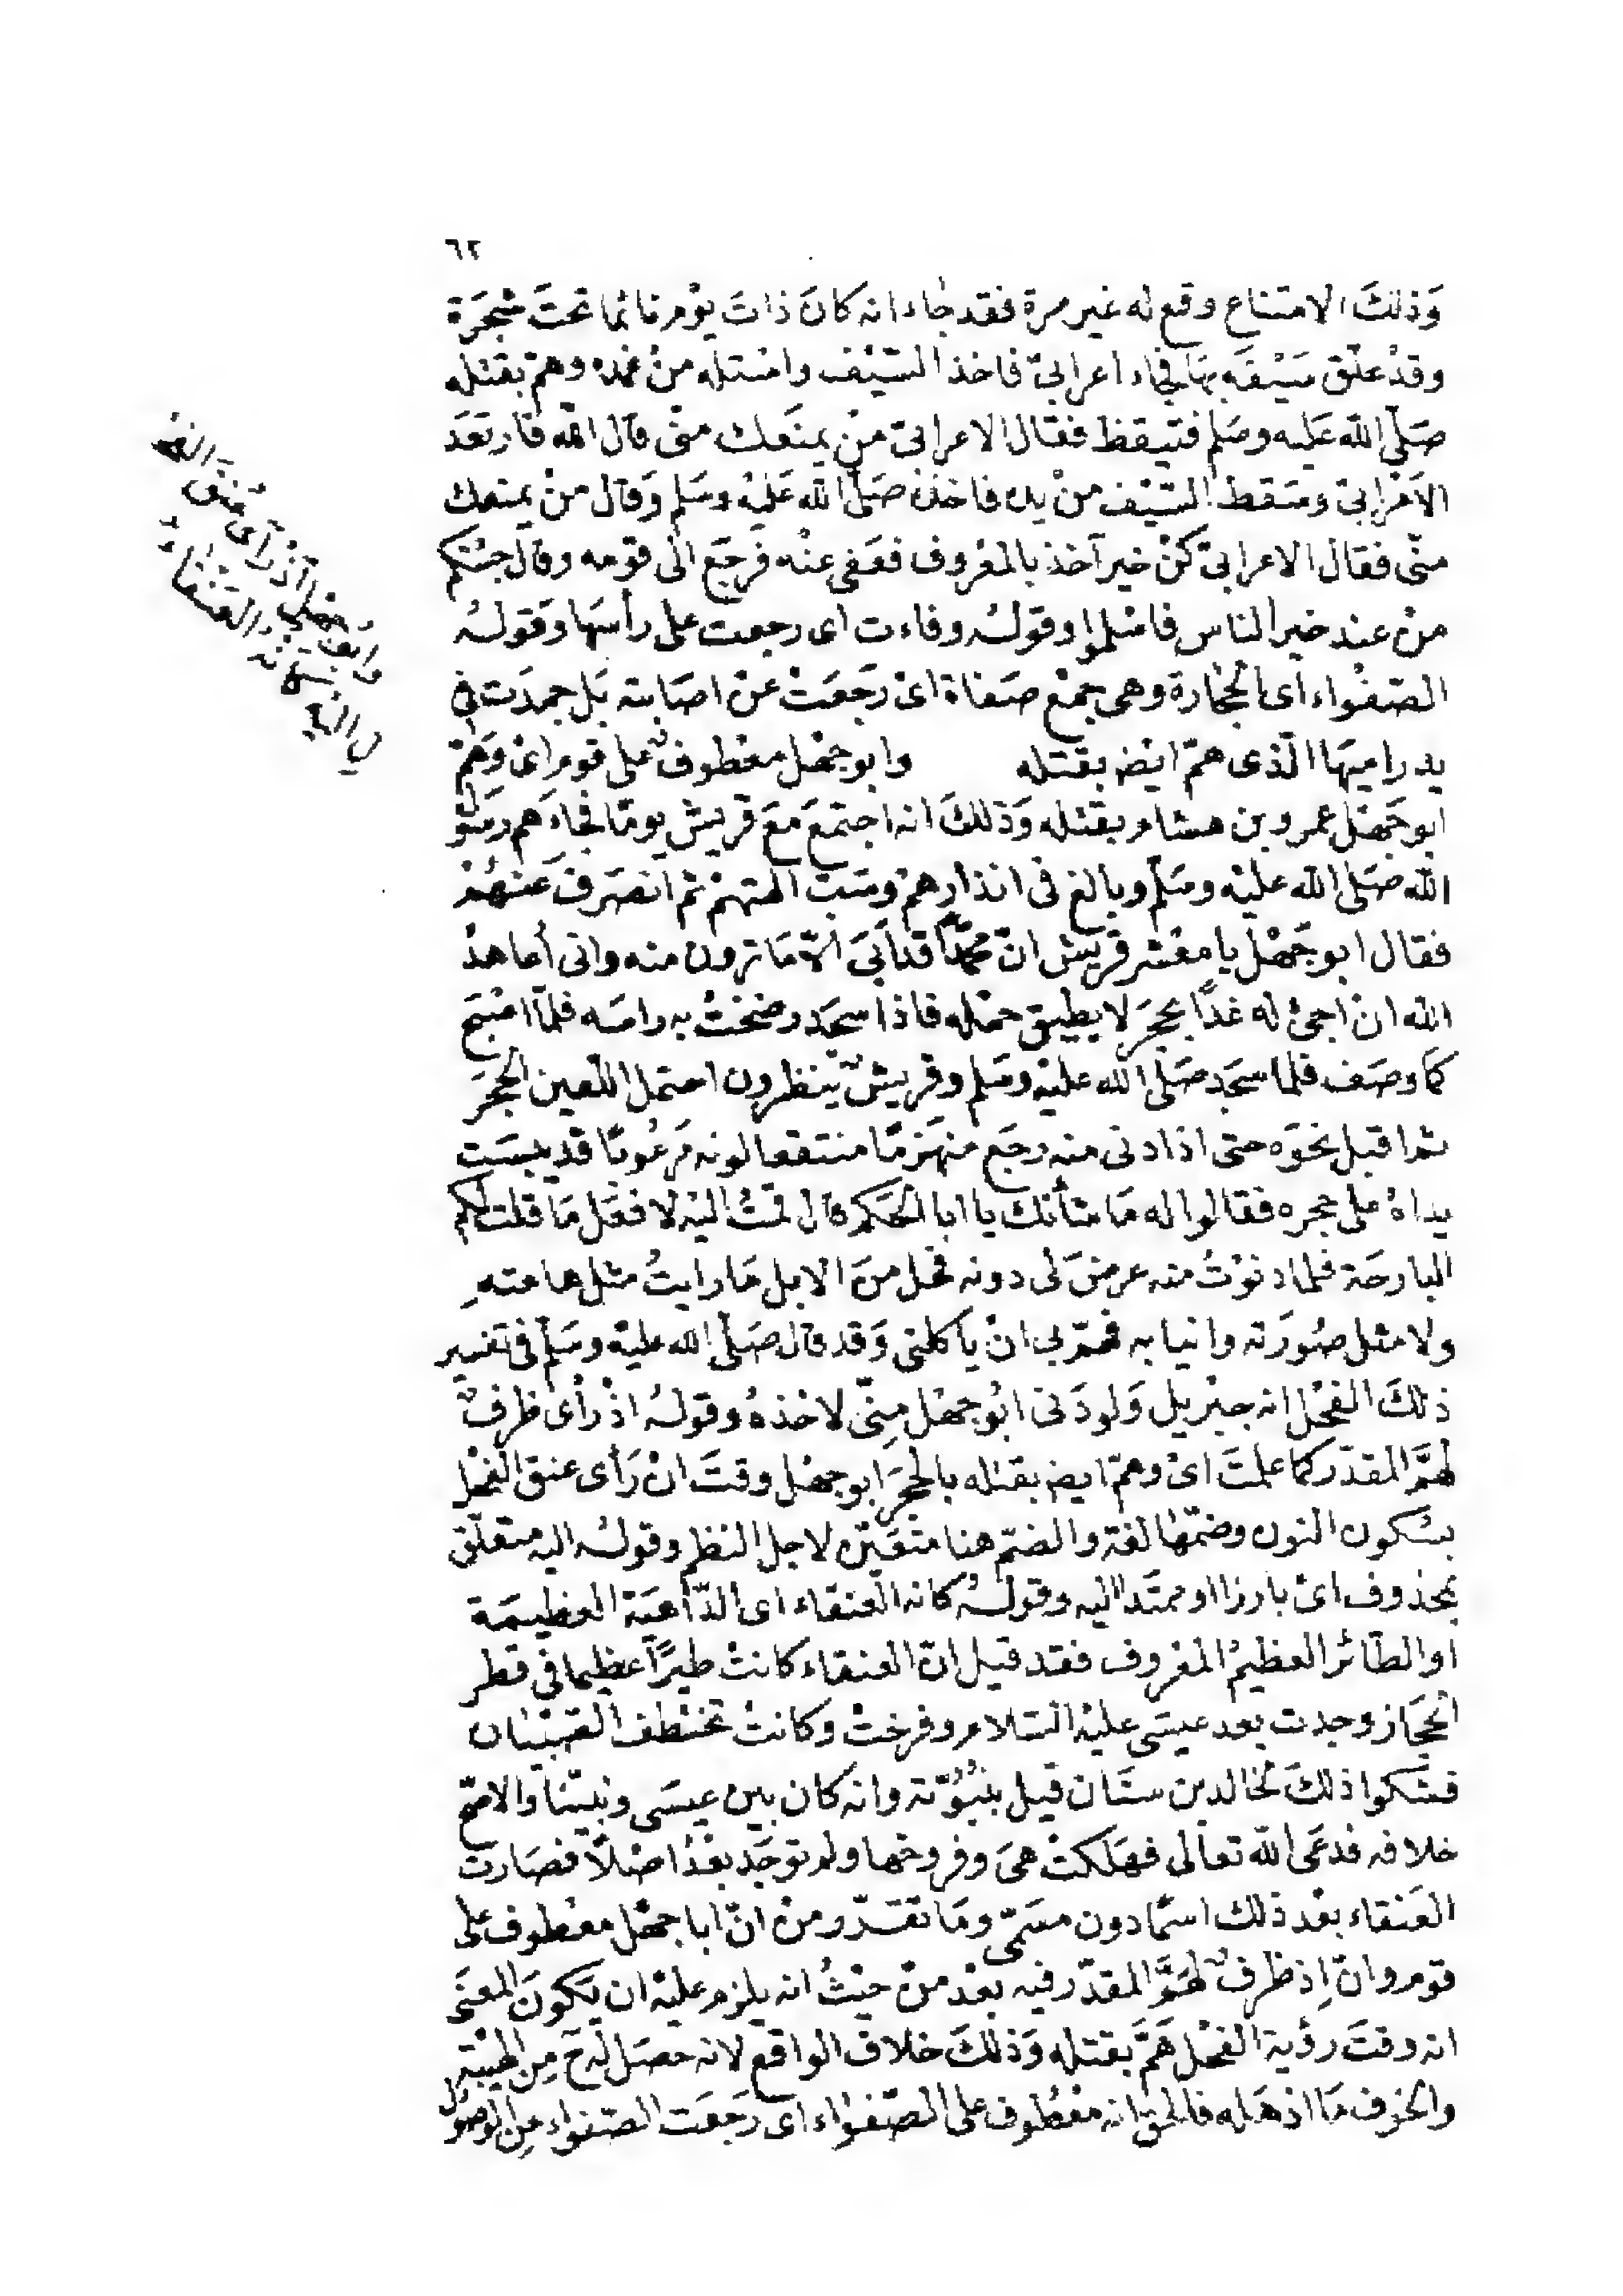 ٦٢
وَذلكَ الامتناع وقع له غير مرة فقد جاء انه كانَ ذاتَ يوْم نائما تحتَ شجَرَة
وقدْ علّق سَيْفَه بهَا فجاء اعرابىّ فاخذ السّيْف واسْتله منْ غمده وهمّ بقتْله
صَلّى الله عَليه وسَلم فتيقظ فقال الاعرابىّ منْ يمنَعك منّى قال الله فارتعَدَ
الاعْرابىّ وسَقط السّيْف منْ يده فاخذهُ صَلّى الله عَليْه وسَلم وَقال منْ يمنعك
منّى فقال الاعرابىّ كنْ خير آخذ بالمعْروف فعَفى عنْه فرجَع الى قوْمه وقال جئتكم
منْ عند خير الناس فاسْلموا وقولهُ وفاءت اى رجعت على رأسهَا وَقولهُ
الصّفْواء اى الحجَارة وهى جمْع صَفاة اىْ رَجَعَتْ عنْ اصَابته بَل جمدَت فى
يد راميهَا الّذى همّ ايْضً بقتله وابو جهْل معْطوفٌ على قوم اىْ وَهَمّ
ابو جَهْل عمرو بن هشام بقتْله وَذلكَ انه اجتمَعَ مَعَ قريش يومًا فجاءَهم رسُول
الله صَلى الله عليْه وسَلّم وبالغ فى انذارهمْ وسَبّ آلهتهمْ ثم انصَرفَ عنهُمْ
فقال ابو جَهْل يا معْشر قريْش انّ محمّدًا قد أبَى الاّ مَا ترون منه وانى أعاهدْ
الله انْ اجئ له غدًا بحجَر لا يطيق حمْله فاذا سجَد رضخْتُ به راسَه فلمّا اصْبَح
كما وصَف فلما سجَد صَلّى الله عليْه وسَلم وقريشٌ يَنظرون احتمل اللّعين الحجَر
ثم اقبل نحْوَه حتى اذا دنى منه رجَع منهَزمًا منتقعا لونه مَرعُوبًا قد يبسَت
يداهُ على حجره فقالوا له مَا شأنك يا ابا الحَكم قال قمتُ اليْه لافعَل مَا قلت لكم
البارحَة فلما دنوْتُ منه عرضَ لى دونه فحل منَ الابل مَا رايتُ مثل هامتهِ
ولا مثل صُورَته وانيابه فهمّ بى انْ ياكلنى وَقد قال صَلّى الله عليْه وسَلّم فى تفسير
ذلكَ الفحْل انه جبْريل وَلو دَنى ابُو جهْل مِنّى لاخذهُ وقولهُ اذْ رأى ظرفٌ
لهَمَّ المقدّر كما علمتَ اىْ وهمّ ايضً بقتْله بالحجَر ابو جهْل وقتَ انْ رَأى عنق الفحْل
بسُكون النون وضمّها لغة والضمّ هنا متعَيّن لاجل النظم وقولهُ اليه متعلّق
بمحذوف اىْ بارزا او ممتَدّا اليه وقولهُ كانه العَنقاء اى الدّاهيَة العظيمَة
او الطّائر العظيمُ المعْروف فقد قيل انّ العنقاء كانتْ طيرًا عظيما فى قطر
الحجَاز وجدت بعد عيسَى عليْه السّلام وفرختْ وكانتْ تختطف الصّبْيان
فشَكوا ذلكَ لخالد بن سنَان قيل بنُبُوّته وانه كان بين عيسَى ونبيّنا والاصّح
خلافه فدعَى الله تعالى فهَلكتْ هىَ وفروخها ولم توجَد بعْدُ اصْلاً فصَارت
العَنقاء بعْد ذلك اسمًا دون مسَمّى ومَا تقدّم منْ انّ ابا جهْل معْطوف على
قوم وانّ اِذ ظرفٌ لهَمَّ المقدّر فيه بعْد منْ حيْثُ انه يلزم عليْه ان يَكونَ المعنَى
انه وقتَ رؤية الفحْل هَمَّ بقتله وَذلكَ خلافُ الواقع لانه حصَل له ح مِن الهيْبَة
والخوف مَا اذهَله فالحقّ انه معْطُوف على الصّفواء اى رَجَعَت الصّفواء عنِ الوصُول
وابُو جهْل اذْ رأى عُنق الفحْـ
ـل اليْه كانه العَنْقاءُ